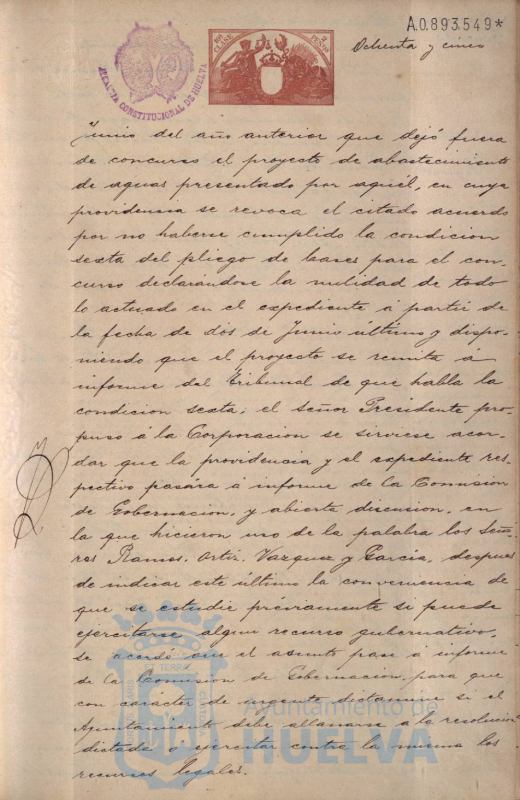 A.0.893.549*
10ª CLASE
2 PESETAS
ALCALDIA CONSTITUCIONAL DE HUELVA
Ochenta y cinco
Junio del año anterior que dejó fuera
de concurso el proyecto de abastecimiento
de aguas presentado por aquél, en cuya
providencia se revoca el citado acuerdo
por no haberse cumplido la condicion
sexta del pliego de bases para el con-
curso declarándose la nulidad de todo
lo actuado en el expediente á partir de
la fecha de dós de Junio último y dispo-
niendo que el proyecto se remita á
informe del Tribunal de que habla la
condicion sexta; el señor Presidente pro-
puso á la Corporacion se sirviese acor-
dar que la providencia y el expediente res-
pectivo pasára á informe de la Comision
de Gobernacion, y abierta discusion, en
la que hicieron uso de la palabra los Seño-
res Ramos, Ortiz, Vazquez y Garcia, despues
de indicar este último la conveniencia de
que se estudie préviamente si puede
ejercitarse algun recurso gubernativo,
se acordó que el asunto pase á informe
de la Comision de Gobernacion, para que
con carácter de urgente dictamine si el
Ayuntamiento debe allanarse á la resolucion
dictada ó ejercitar contra la misma los
recursos legales.
Ayuntamiento de
HUELVA